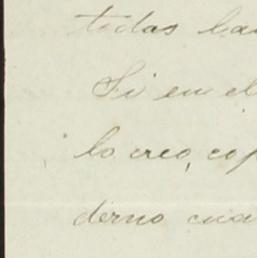 todas ba
Si en el
lo creo, cop
derno cua